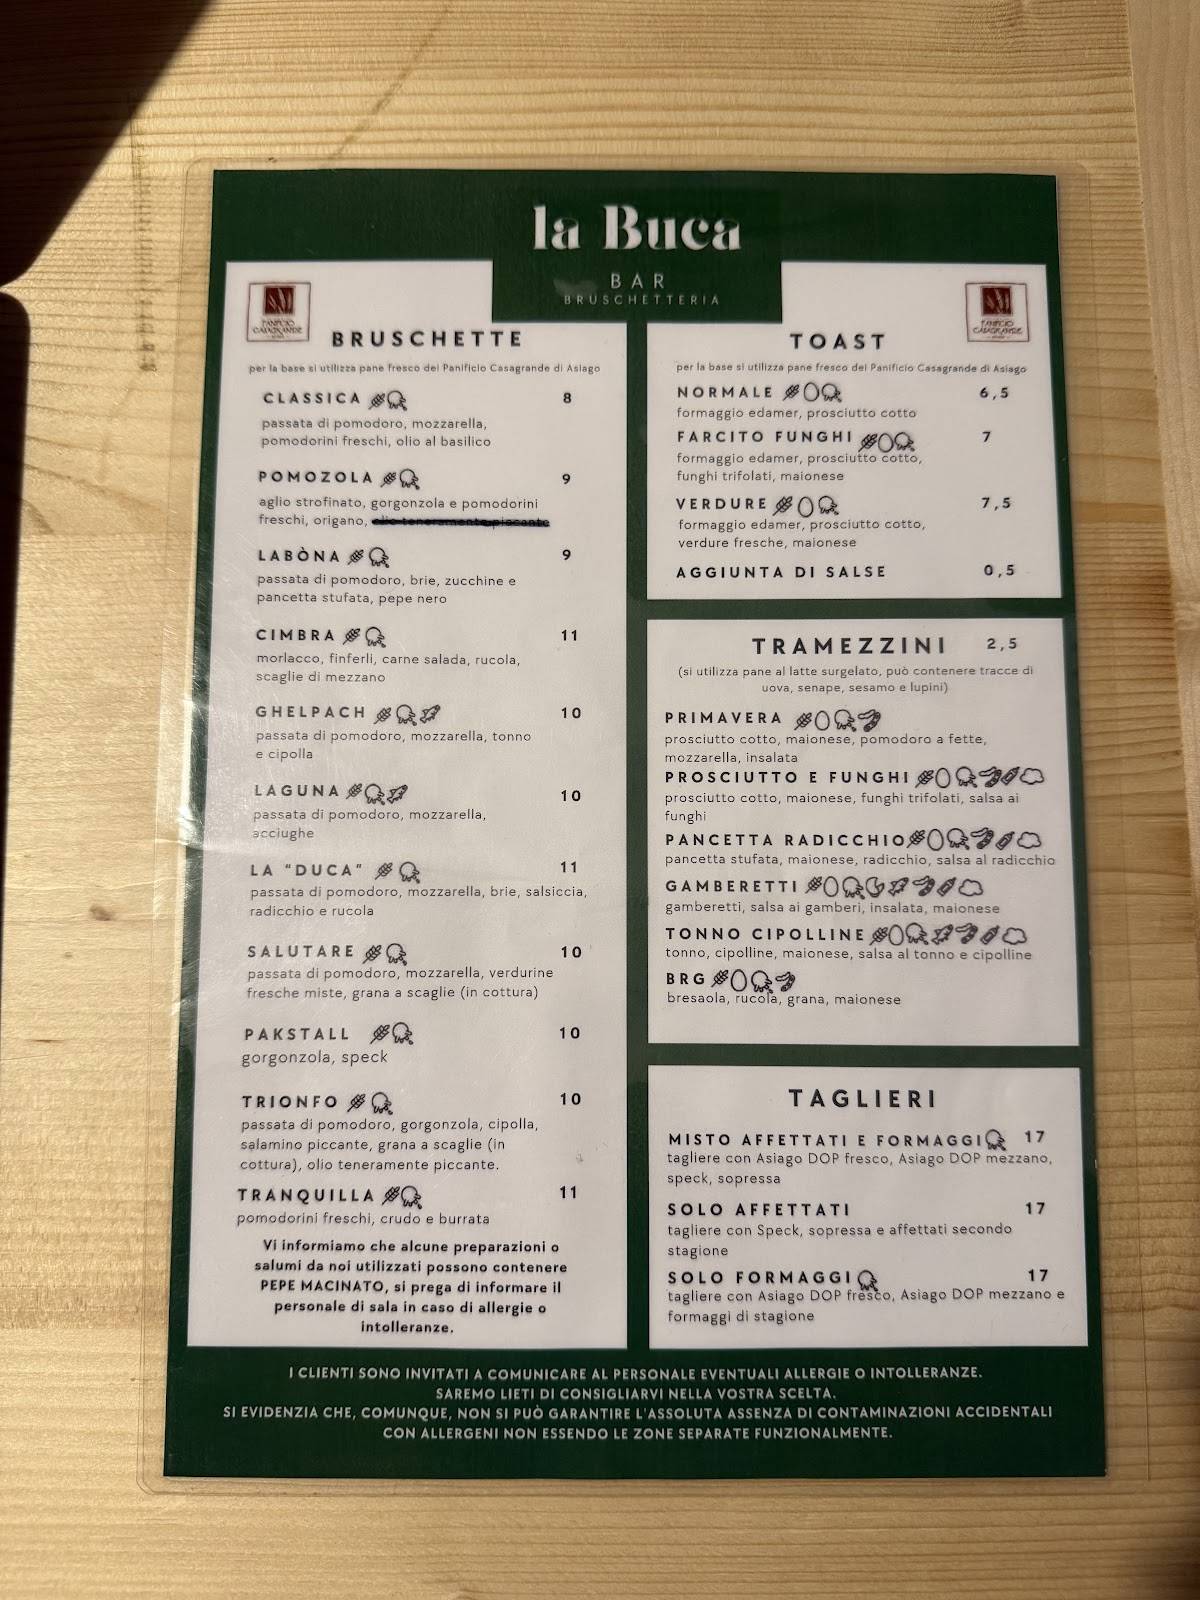 la Buca
BAR
BRUSCHETTERIA
PANIFICIO
CASAGRANDE
BRUSCHETTE
per la base si utilizza pane fresco del Panificio Casagrande di Asiago
CLASSICA 8
passata di pomodoro, mozzarella,
pomodorini freschi, olio al basilico
POMOZOLA 9
aglio strofinato, gorgonzola e pomodorini
freschi, origano, olio teneramente piccante
LABÒNA 9
passata di pomodoro, brie, zucchine e
pancetta stufata, pepe nero
CIMBRA 11
morlacco, finferli, carne salada, rucola,
scaglie di mezzano
GHELPACH 10
passata di pomodoro, mozzarella, tonno
e cipolla
LAGUNA 10
passata di pomodoro, mozzarella,
acciughe
LA "DUCA" 11
passata di pomodoro, mozzarella, brie, salsiccia,
radicchio e rucola
SALUTARE 10
passata di pomodoro, mozzarella, verdurine
fresche miste, grana a scaglie (in cottura)
PAKSTALL 10
gorgonzola, speck
TRIONFO 10
passata di pomodoro, gorgonzola, cipolla,
salamino piccante, grana a scaglie (in
cottura), olio teneramente piccante.
TRANQUILLA 11
pomodorini freschi, crudo e burrata
Vi informiamo che alcune preparazioni o
salumi da noi utilizzati possono contenere
PEPE MACINATO, si prega di informare il
personale di sala in caso di allergie o
intolleranze.
PANIFICIO
CASAGRANDE
TOAST
per la base si utilizza pane fresco del Panificio Casagrande di Asiago
NORMALE 6,5
formaggio edamer, prosciutto cotto
FARCITO FUNGHI 7
formaggio edamer, prosciutto cotto,
funghi trifolati, maionese
VERDURE 7,5
formaggio edamer, prosciutto cotto,
verdure fresche, maionese
AGGIUNTA DI SALSE 0,5
TRAMEZZINI 2,5
(si utilizza pane al latte surgelato, può contenere tracce di
uova, senape, sesamo e lupini)
PRIMAVERA
prosciutto cotto, maionese, pomodoro a fette,
mozzarella, insalata
PROSCIUTTO E FUNGHI
prosciutto cotto, maionese, funghi trifolati, salsa ai
funghi
PANCETTA RADICCHIO
pancetta stufata, maionese, radicchio, salsa al radicchio
GAMBERETTI
gamberetti, salsa ai gamberi, insalata, maionese
TONNO CIPOLLINE
tonno, cipolline, maionese, salsa al tonno e cipolline
BRG
bresaola, rucola, grana, maionese
TAGLIERI
MISTO AFFETTATI E FORMAGGI 17
tagliere con Asiago DOP fresco, Asiago DOP mezzano,
speck, sopressa
SOLO AFFETTATI 17
tagliere con Speck, sopressa e affettati secondo
stagione
SOLO FORMAGGI 17
tagliere con Asiago DOP fresco, Asiago DOP mezzano e
formaggi di stagione
I CLIENTI SONO INVITATI A COMUNICARE AL PERSONALE EVENTUALI ALLERGIE O INTOLLERANZE.
SAREMO LIETI DI CONSIGLIARVI NELLA VOSTRA SCELTA.
SI EVIDENZIA CHE, COMUNQUE, NON SI PUÒ GARANTIRE L'ASSOLUTA ASSENZA DI CONTAMINAZIONI ACCIDENTALI
CON ALLERGENI NON ESSENDO LE ZONE SEPARATE FUNZIONALMENTE.